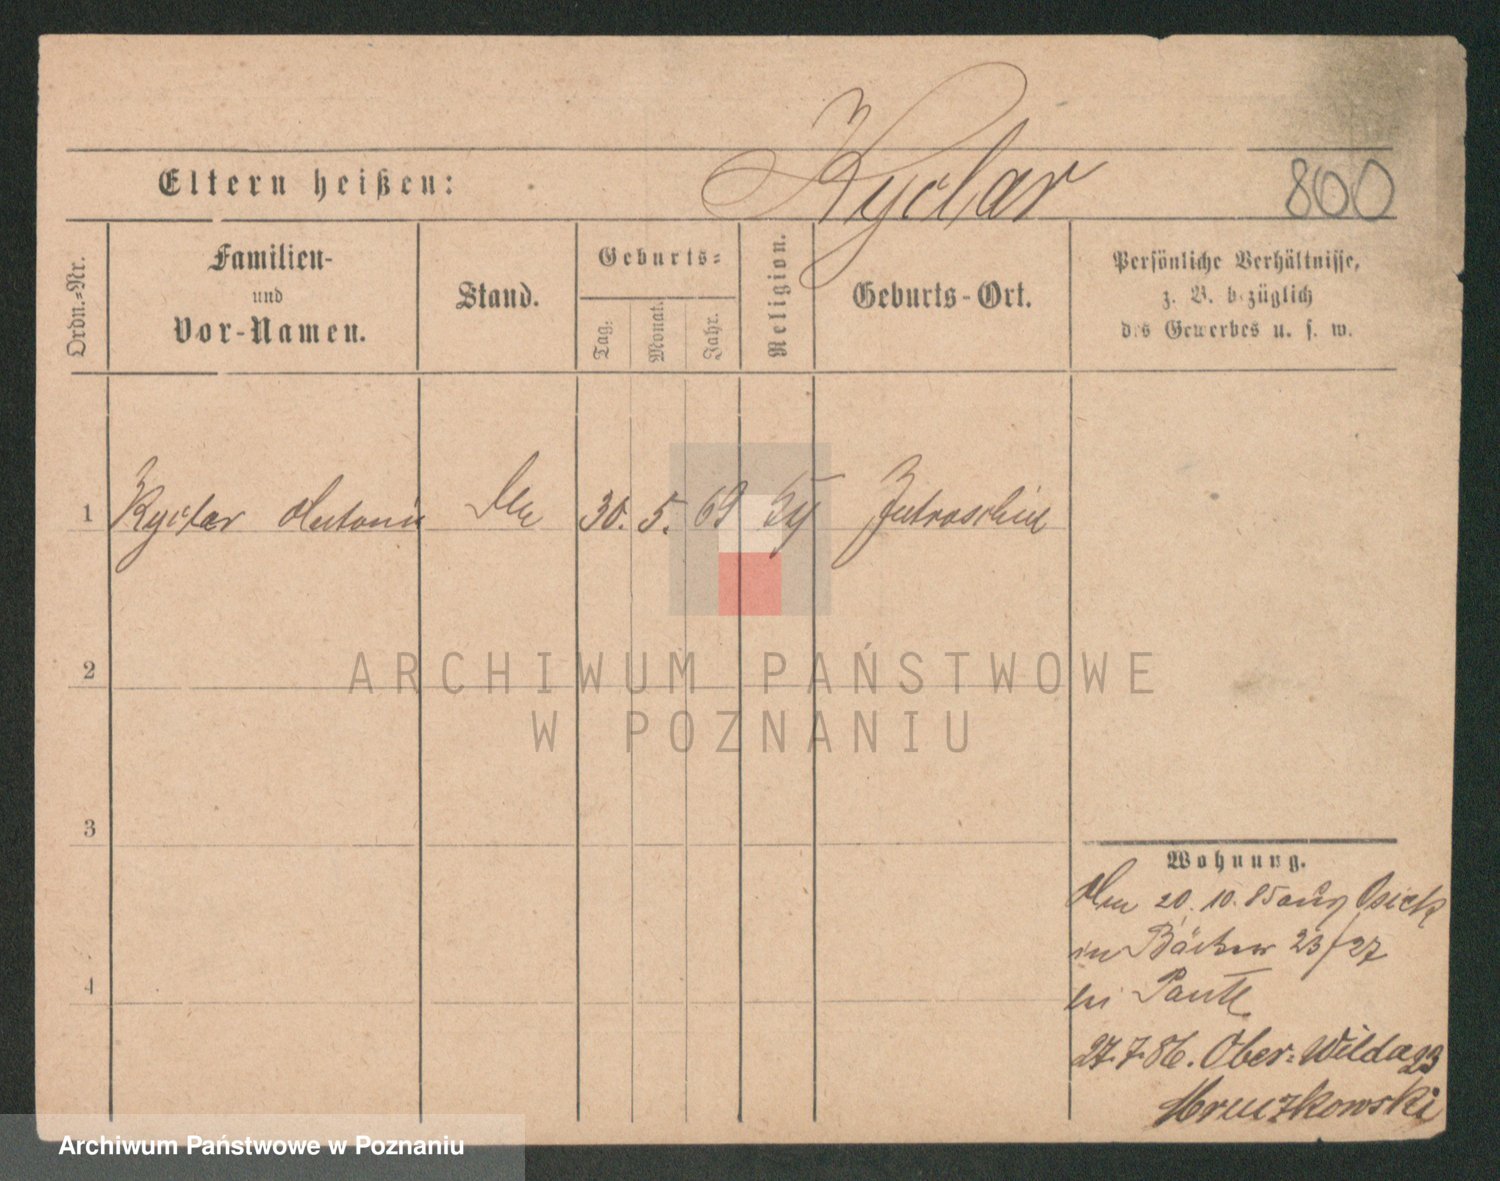 Kyclar 800
Eltern heißen:
Ordn.=Nr.
Familien-
und
Vor-Namen.
Stand.
Geburts=
Tag.
Monat.
Jahr.
Religion.
Geburts-Ort.
Persönliche Verhältnisse,
z. B. bezüglich
des Gewerbes u. s. w.
1 Kyclar Antonie 30. 5. 69 Jutroschin
2
ARCHIWUM PAŃSTWOWE
W POZNANIU
3
Wohnung.
20. 10. 85 aus Osiek
in 23/27
bei
4
27.7.86. Ober=Wilda 23
Mruczkowski
Archiwum Państwowe w Poznaniu